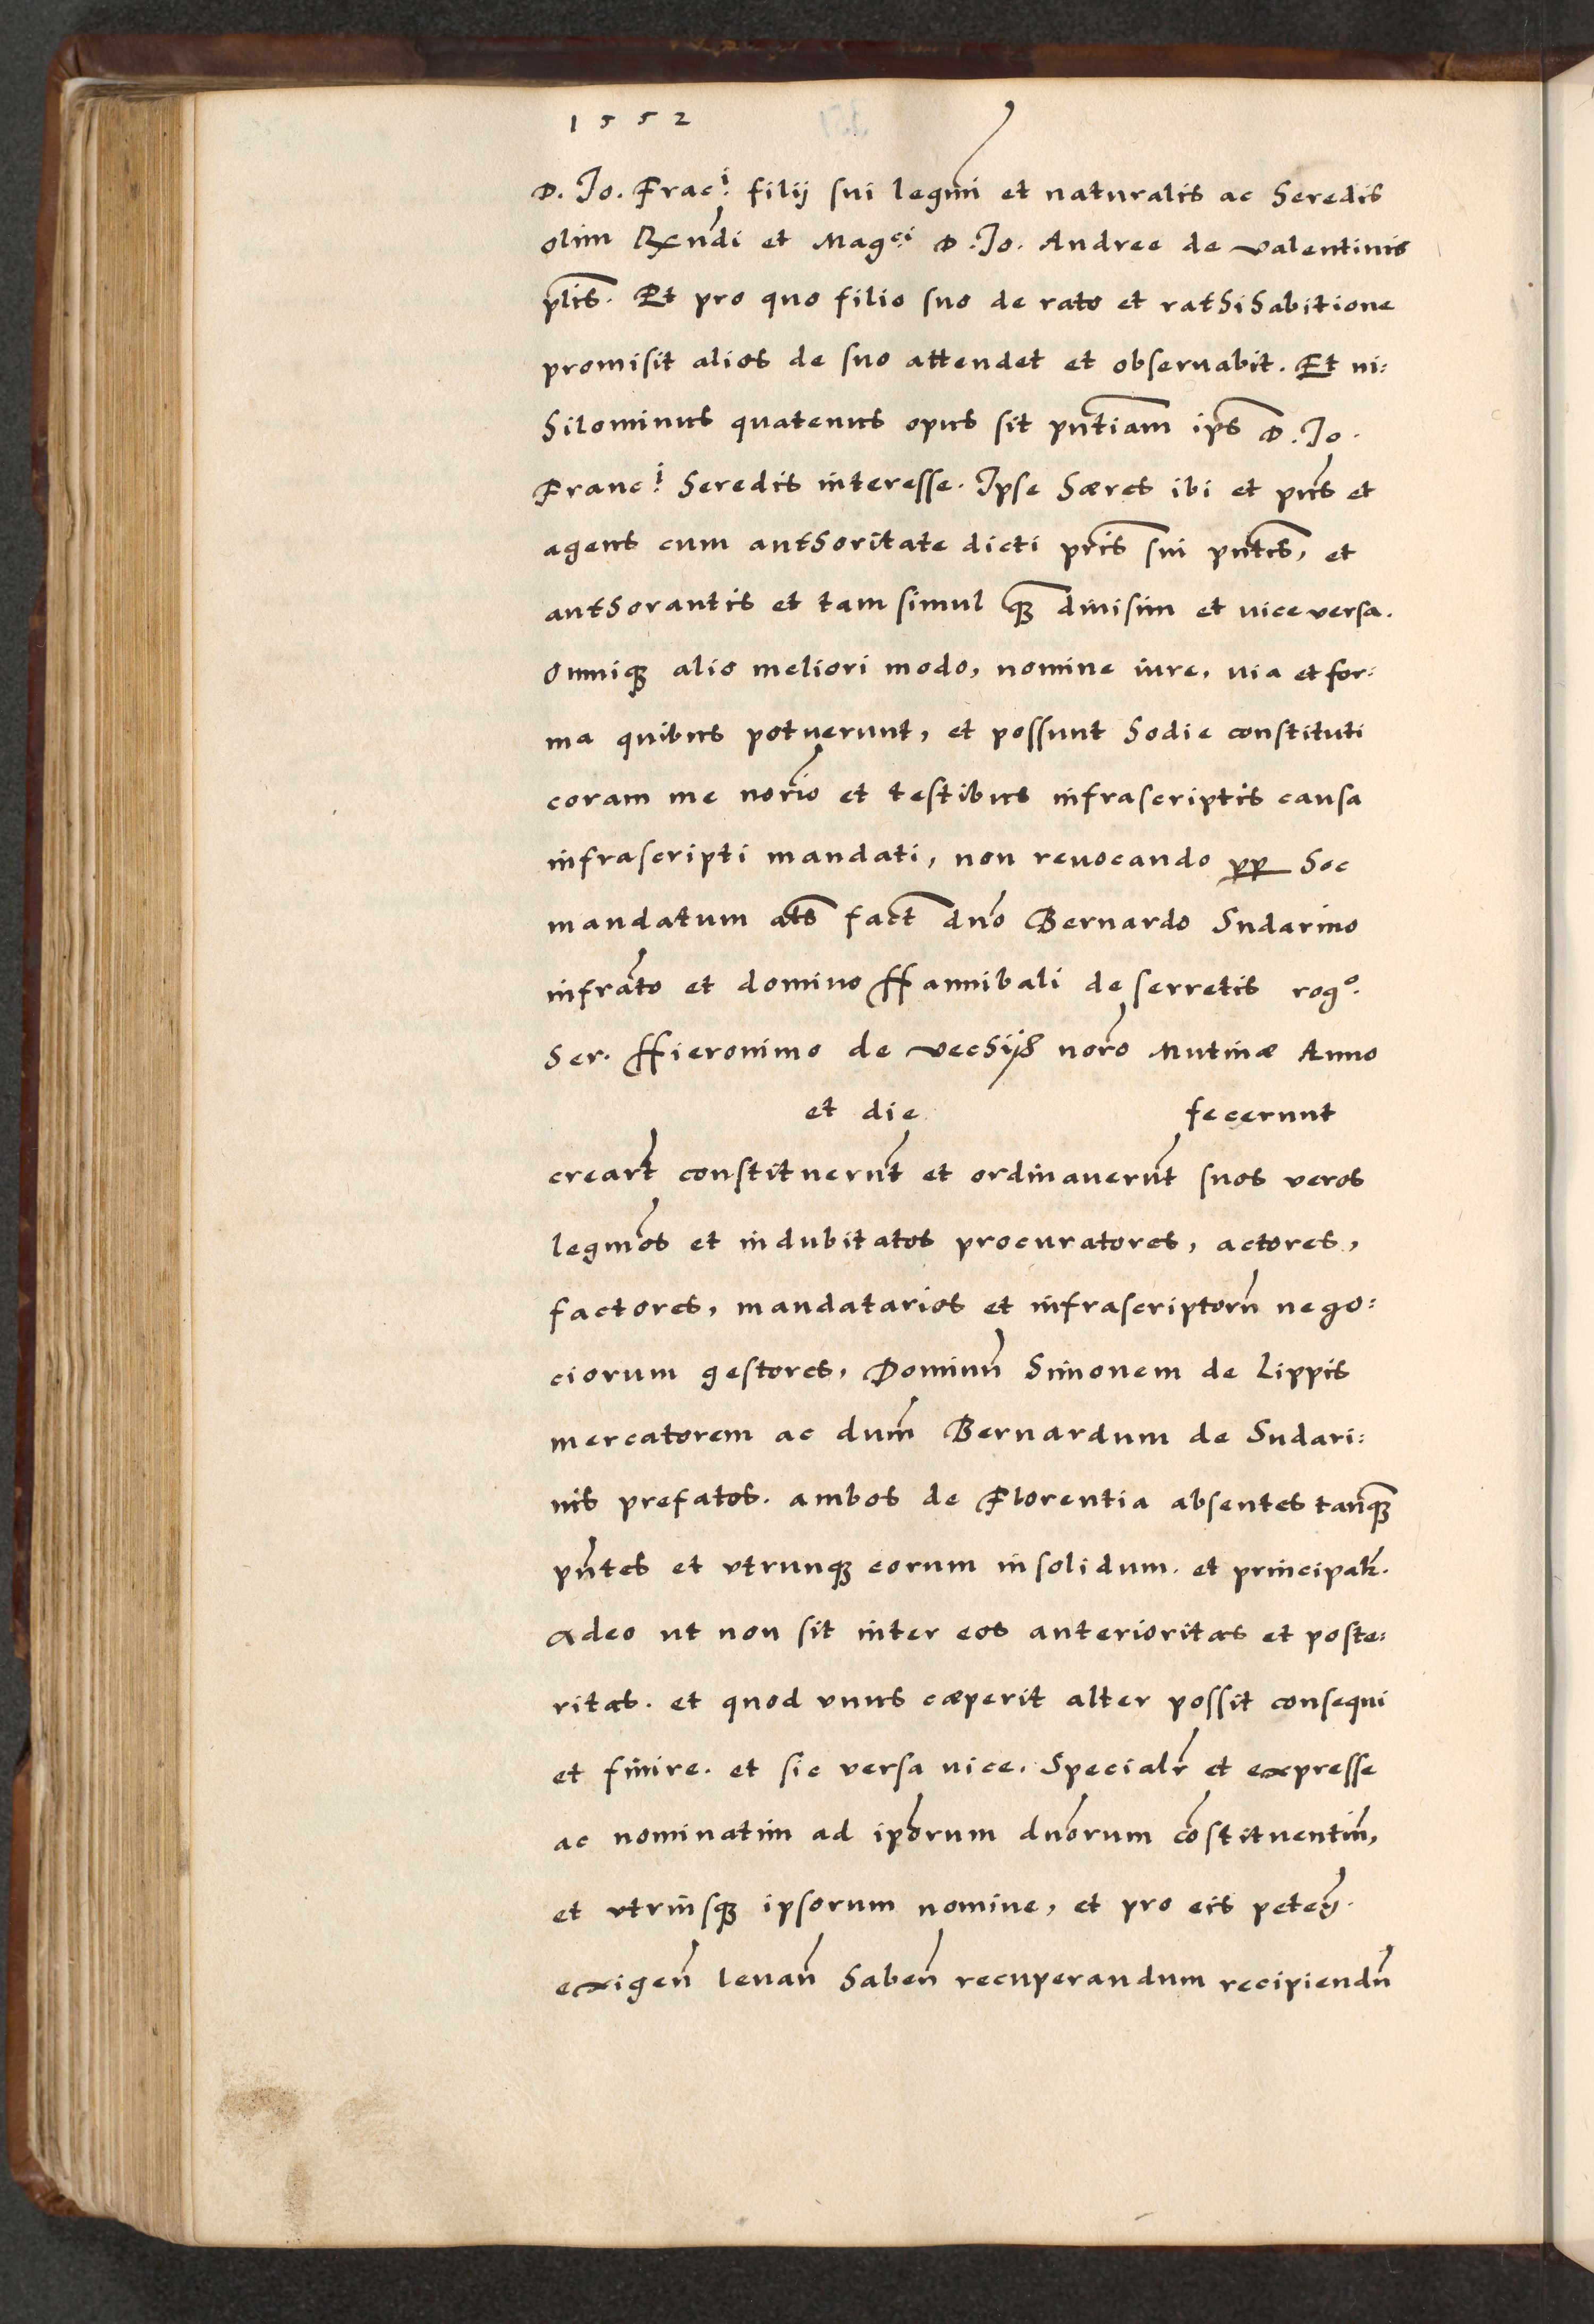 1552
D. Jo. Fracⁱ. filij sui legmi et naturalis ac heredis
olim Rxndi et Magᶜⁱ D. Jo. Andree de valentinis
plis. Et pro quo filio suo de rato et rathihabitione
promisit alios de suo attendet et observabit. Et ni:
hilominus quatenus opus sit pntiam ips D. Jo.
Francⁱ. heredis interesse. Ipse hæres ibi et pns et
agens cum authoritate dicti pris sui pntis, et
authorantis et tam simul qȝ divisim et viceversa.
omniqȝ alio meliori modo, nomine iure, via et for:
ma quibus potuerunt, et possunt hodie constituti
coram me norio et testibus infrascriptis causa
infrascripti mandati, non revocando pp hoc
mandatum ats fact dno Bernardo Sudarino
infrato et domino Hannibali de serretis rogᵒ.
Ser. Hieronimo de vechijs noro Mutinæ Anno
et die fecerunt
creart constituerut et ordinaverut suos veros
legmos et indubitatos procuratores, actores,
factores, mandatarios et infrascriptorn nego:
ciorum gestores, Dominu Simonem de Lippis
mercatorem ac dum Bernardum de Sudari:
nis prefatos. ambos de Florentia absentes tanqȝ
pntes et vtrunqȝ eorum in solidum. et principalr.
Adeo ut non sit inter eos anterioritas et poste:
ritas. et quod vnus cæperit alter possit consequi
et finire. et sic versa vice. Specialr et expresse
ac nominatim ad iporum dnorum costituentiu,
et vtriusqȝ ipsorum nomine, et pro eis peteg.
exigen levan haben recuperandum recipiendu